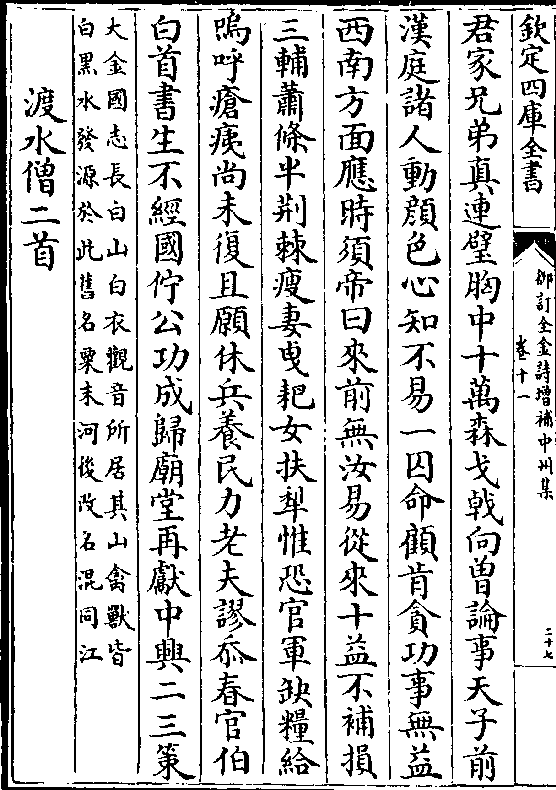 欽定四庫全書
御訂全金詩增補中州集
卷十一
二十七
君家兄弟真連璧胸中十萬森戈戟向曽論事天子前
漢庭諸人動顔色心知不易一囚命顧肯貪功事無益
西南方面應時須帝曰來前無汝易從來十益不補損
三輔蕭條半荆棘瘦妻曵耙女扶犁惟恐官軍缺糧給
嗚呼瘡痍尚未復且願休兵養民力老夫謬忝春官伯
白首書生不經國佇公功成歸廟堂再獻中興二三策
大金國志長白山白衣觀音所居其山禽獸皆
白黑水發源於此舊名粟末河後改名混同江
渡水僧二首